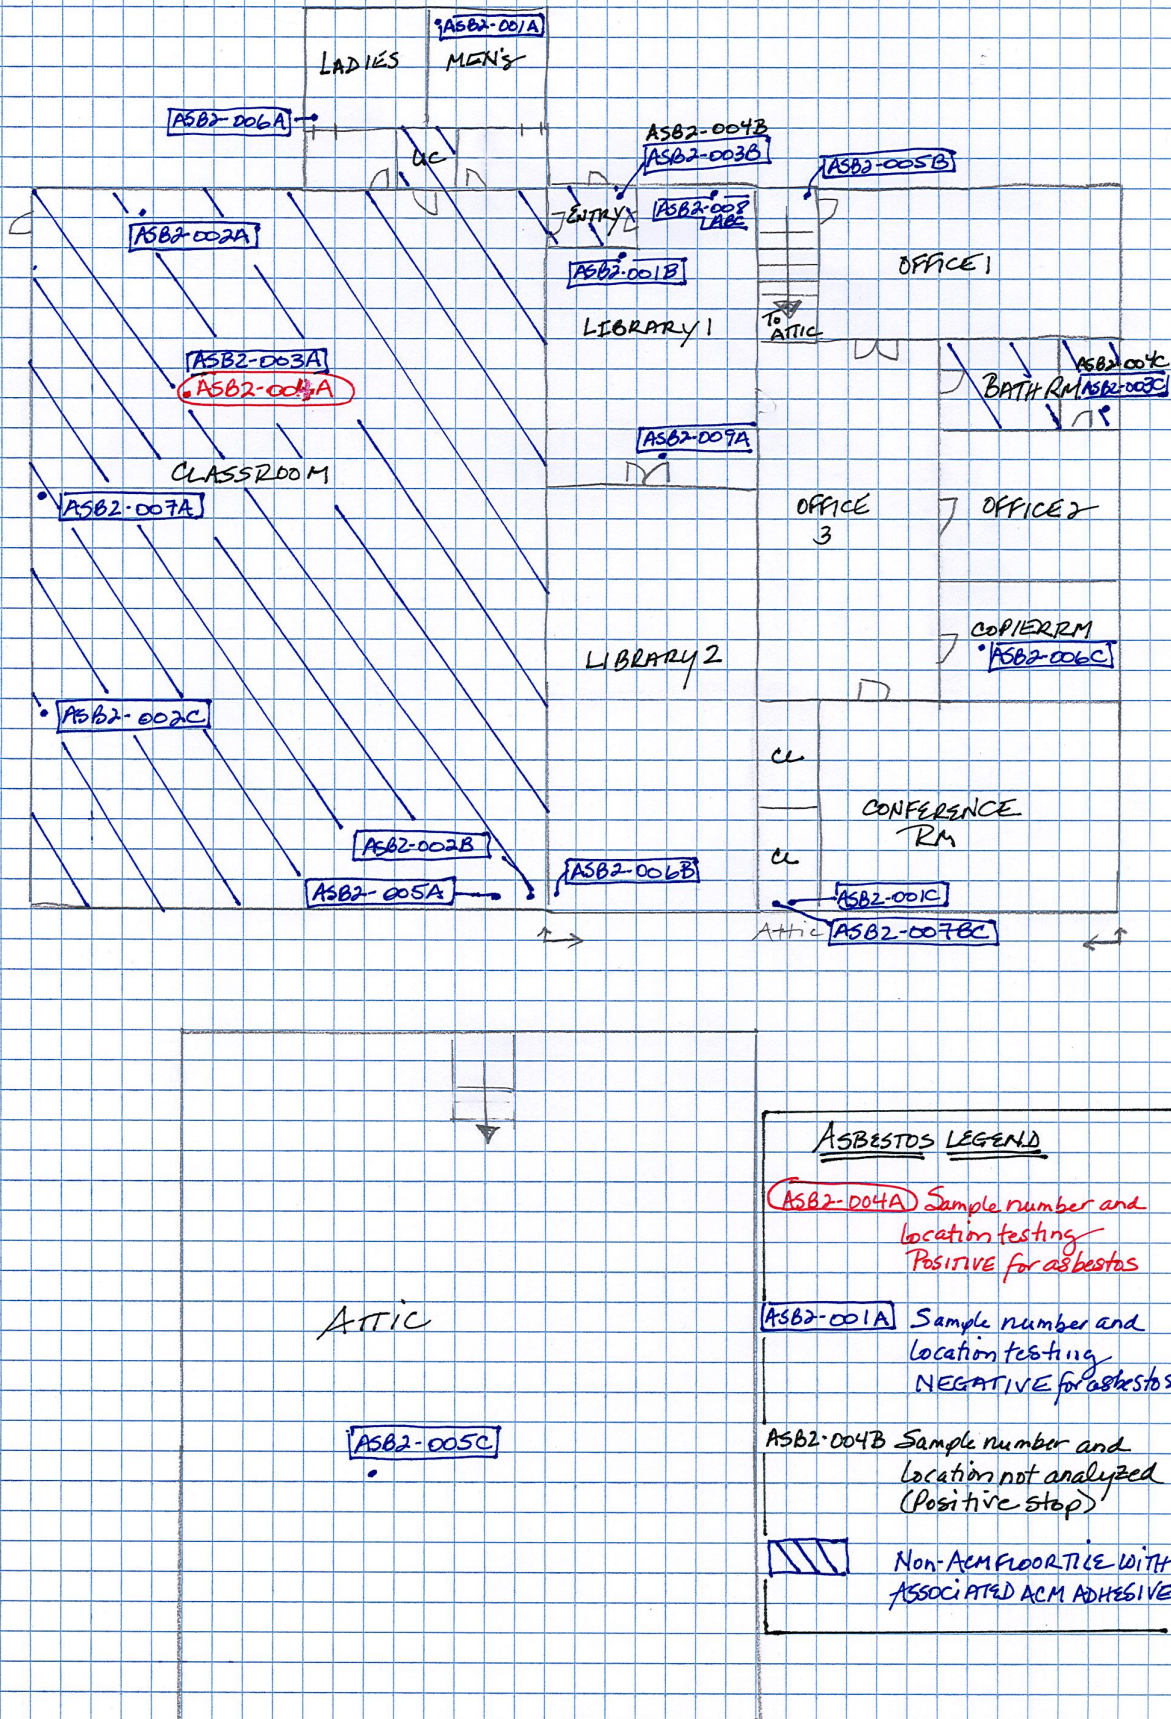 ASB2-001A
LADIES
MEN'S
ASB2-006A
ASB2-004B
ASB2-003B
ASB2-005B
ENTRY
ASB2-008
ABC
ASB2-002A
ASB2-001B
OFFICE 1
LIBRARY 1
To
ATTIC
ASB2-003A
ASB2-004A
ASB2-004C
BATH RM
ASB2-003C
ASB2-009A
CLASSROOM
ASB2-007A
OFFICE
3
OFFICE 2
COPIER RM
ASB2-006C
LIBRARY 2
ASB2-002C
CL
CONFERENCE
RM
ASB2-002B
CL
ASB2-006B
ASB2-005A
ASB2-001C
Attic
ASB2-007BC
ASBESTOS LEGEND
ASB2-004A Sample number and
Location testing
POSITIVE for asbestos
ATTIC
ASB2-001A Sample number and
Location testing
NEGATIVE for asbestos
ASB2-005C
ASB2-004B Sample number and
Location not analyzed
(Positive stop)
NON-ACM FLOOR TILE WITH
ASSOCIATED ACM ADHESIVE